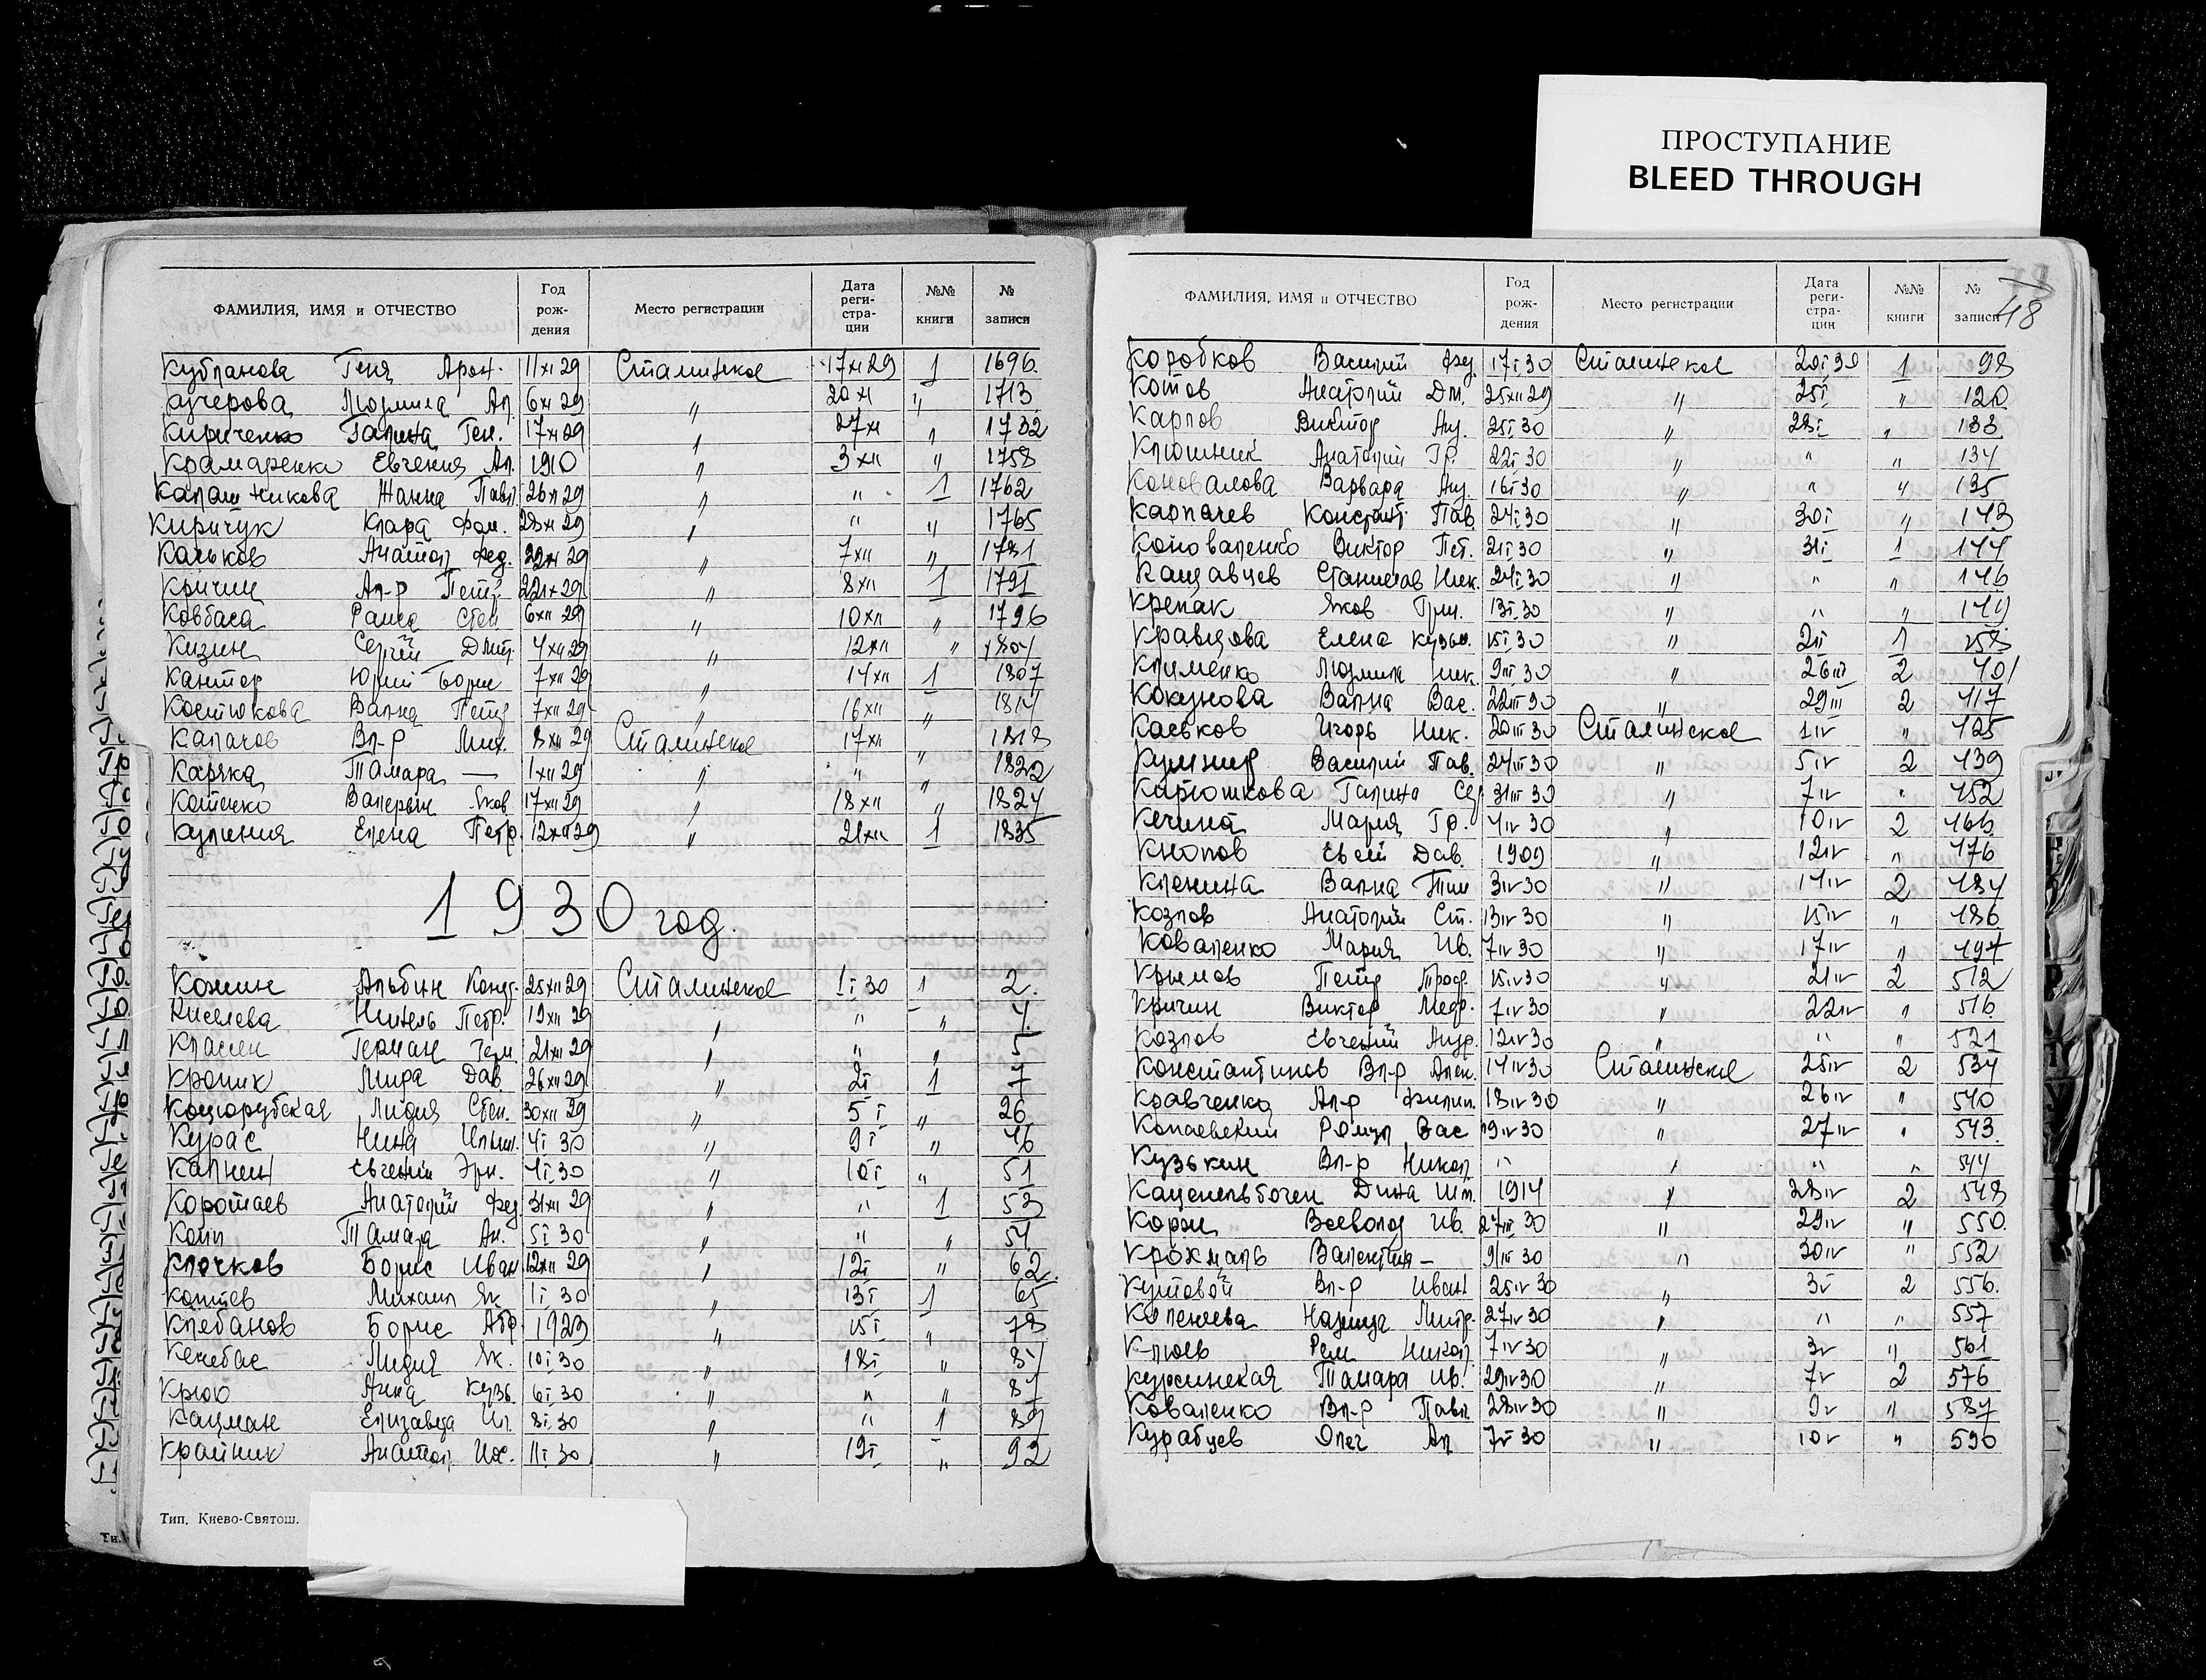 ПРОСТУПАНИЕ
BLEED THROUGH
ФАМИЛИЯ, ИМЯ и ОТЧЕСТВО Год рож-дения Место регистрации Дата реги-стра-ции №№ книги № записи
Кубланова Геня Арон. 11 XI 29 Сталинское 17 XI 29 1 1696.
Кучерова Людмила Ал. 6 XI 29 " 20 XI " 1713
Кириченко Галина Ген. 17 XI 29 " 27 XI " 1732
Крамаренко Евгения Ал. 1910 " 3 XII " 1758
Калашникова Жанна Павл 26 XI 29 " " 1 1762
Киричук Клара Фом. 28 XI 29 " " " 1765
Кальков Анатол Фед. 29 " 7 XII " 1781
Кричин Ал-р Петр 29 " 8 XII 1 1791
Ковбаса Раиса Степ 6 XII 29 " 10 XII " 1796
Кизин Сергей Дмит. 4 XII 29 " 12 XII " 1804
Кантор Юрий Борис 7 XII 29 " 14 XII 1 1807
Костюкова Вална Петр 7 XII 29 " 16 XII " 1814
Калачов Вл-р Мих. 8 XII 29 Сталинское 17 XII " 1818
Каряка Тамара — 1 XII 29 " " " 1822
Котенко Валерьян Яков 17 XII 29 " 18 XII " 1824
Кулиния Елена Петр. 12 XII 29 " 21 XII 1 1835
1930 год.
Кожин Альбин Конд. 25 XII 29 Сталинское 1 I 30 1 2.
Киселева Нинель Петр. 19 XII 29 " " " 4.
Классен Герман Герм. 21 XII 29 " " " 5
Кролик Мира Дав. 26 XII 29 " 2 I 1 7
Коцюрубская Лидия Степ. 30 XII 29 " 5 I " 26
Курас Нина Ильин. 4 I 30 " 9 I " 46
Калнин Евгений Эрн. 4 I 30 " 10 I " 51
Коротаев Анатолий Фед. 31 XII 29 " " 1 53
Колл Тамара Ан. 5 I 30 " " " 54
Клочков Борис Иван 12 XII 29 " 12 I " 62.
Коптев Михаил Як 1 I 30 " 13 I 1 65
Клебанов Борис Абр 1923 " 15 I " 78
Кечебас Лидия Як. 10 I 30 " 18 I "
Крюк Анна Кузь. 6 I 30 " " "
Кацман Елизавета Ил. 8 I 30 " " 1 89
Крайник Анатол. Ис. 11 I 30 " 19 I " 92
Тип. Киево-Святош.
48
ФАМИЛИЯ, ИМЯ и ОТЧЕСТВО Год рож-дения Место регистрации Дата реги-стра-ции №№ книги № записи
Коробков Василий Фед. 17 I 30 Сталинское 20 I 30 1 98
Котов Анатолий Дм. 25 XII 29 " 25 I " 120
Карпов Виктор Анд. 25 I 30 " 28 I " 133
Клюшник Анатолий Гр. 22 I 30 " " " 134
Коновалова Варвара Анд. 16 I 30 " " " 135
Карпачев Констант. Пав. 24 I 30 " 30 I " 143
Коноваленко Виктор Пет. 21 I 30 " 31 I 1 144
Кащавцев Станислав Ник. 24 I 30 " " " 146
Крепак Яков Григ. 13 I 30 " " " 149
Кравцова Елена Кузьм. 15 I 30 " 2 II 1 158
Клименко Людмила Ник. 9 III 30 " 26 III 2 401
Кокунова Вална Вас. 22 III 30 " 29 III 2 417
Каськов Игорь Ник. 20 III 30 Сталинское 1 IV " 425
Кушнир Василий Пав. 24 III 30 " 5 IV 2 439
Кирюшкова Галина Сер 31 III 30 " 7 IV " 452
Кечина Мария Гр. 4 IV 30 " 10 IV 2 466.
Кнопов Евсей Дав. 1909 " 12 IV " 476
Кленина Вална Тим 3 IV 30 " 14 IV 2 484
Козлов Анатолий Ст. 13 IV 30 " 15 IV " 486.
Коваленко Мария Ив. 7 IV 30 " 17 IV " 497
Крымов Петр Проф. 15 IV 30 " 21 IV 2 512
Кричин Виктор Медр. 7 IV 30 " 22 IV " 516.
Козлов Евгений Андр. 12 IV 30 " " " 521
Константинов Вл-р Алек. 14 IV 30 Сталинское 25 IV 2 534
Кравченко Ал-р Филип. 18 IV 30 " 26 IV " 540
Копаевский Ромул Вас 19 IV 30 " 27 IV " 543.
Кузькин Вл-р Никол " " " " 544
Каценельбоген Дина Шл. 1914 " 28 IV 2 548
Корж Всеволод Ив. 27 III 30 " 29 IV " 550.
Крохмаль Валентин — 9 III 30 " 30 IV " 552
Кутовой Вл-р Иван 25 IV 30 " 3 V 2 556.
Копенева Надежда Митр. 27 IV 30 " " " 557
Клюев Рем Никол. 7 IV 30 " 3 V " 561
Куржинская Тамара Ив. 29 IV 30 " 7 V 2 576
Коваленко Вл-р Павл. 28 IV 30 " 9 V " 587
Курабцев Олег Ал 7 V 30 " 10 V " 590